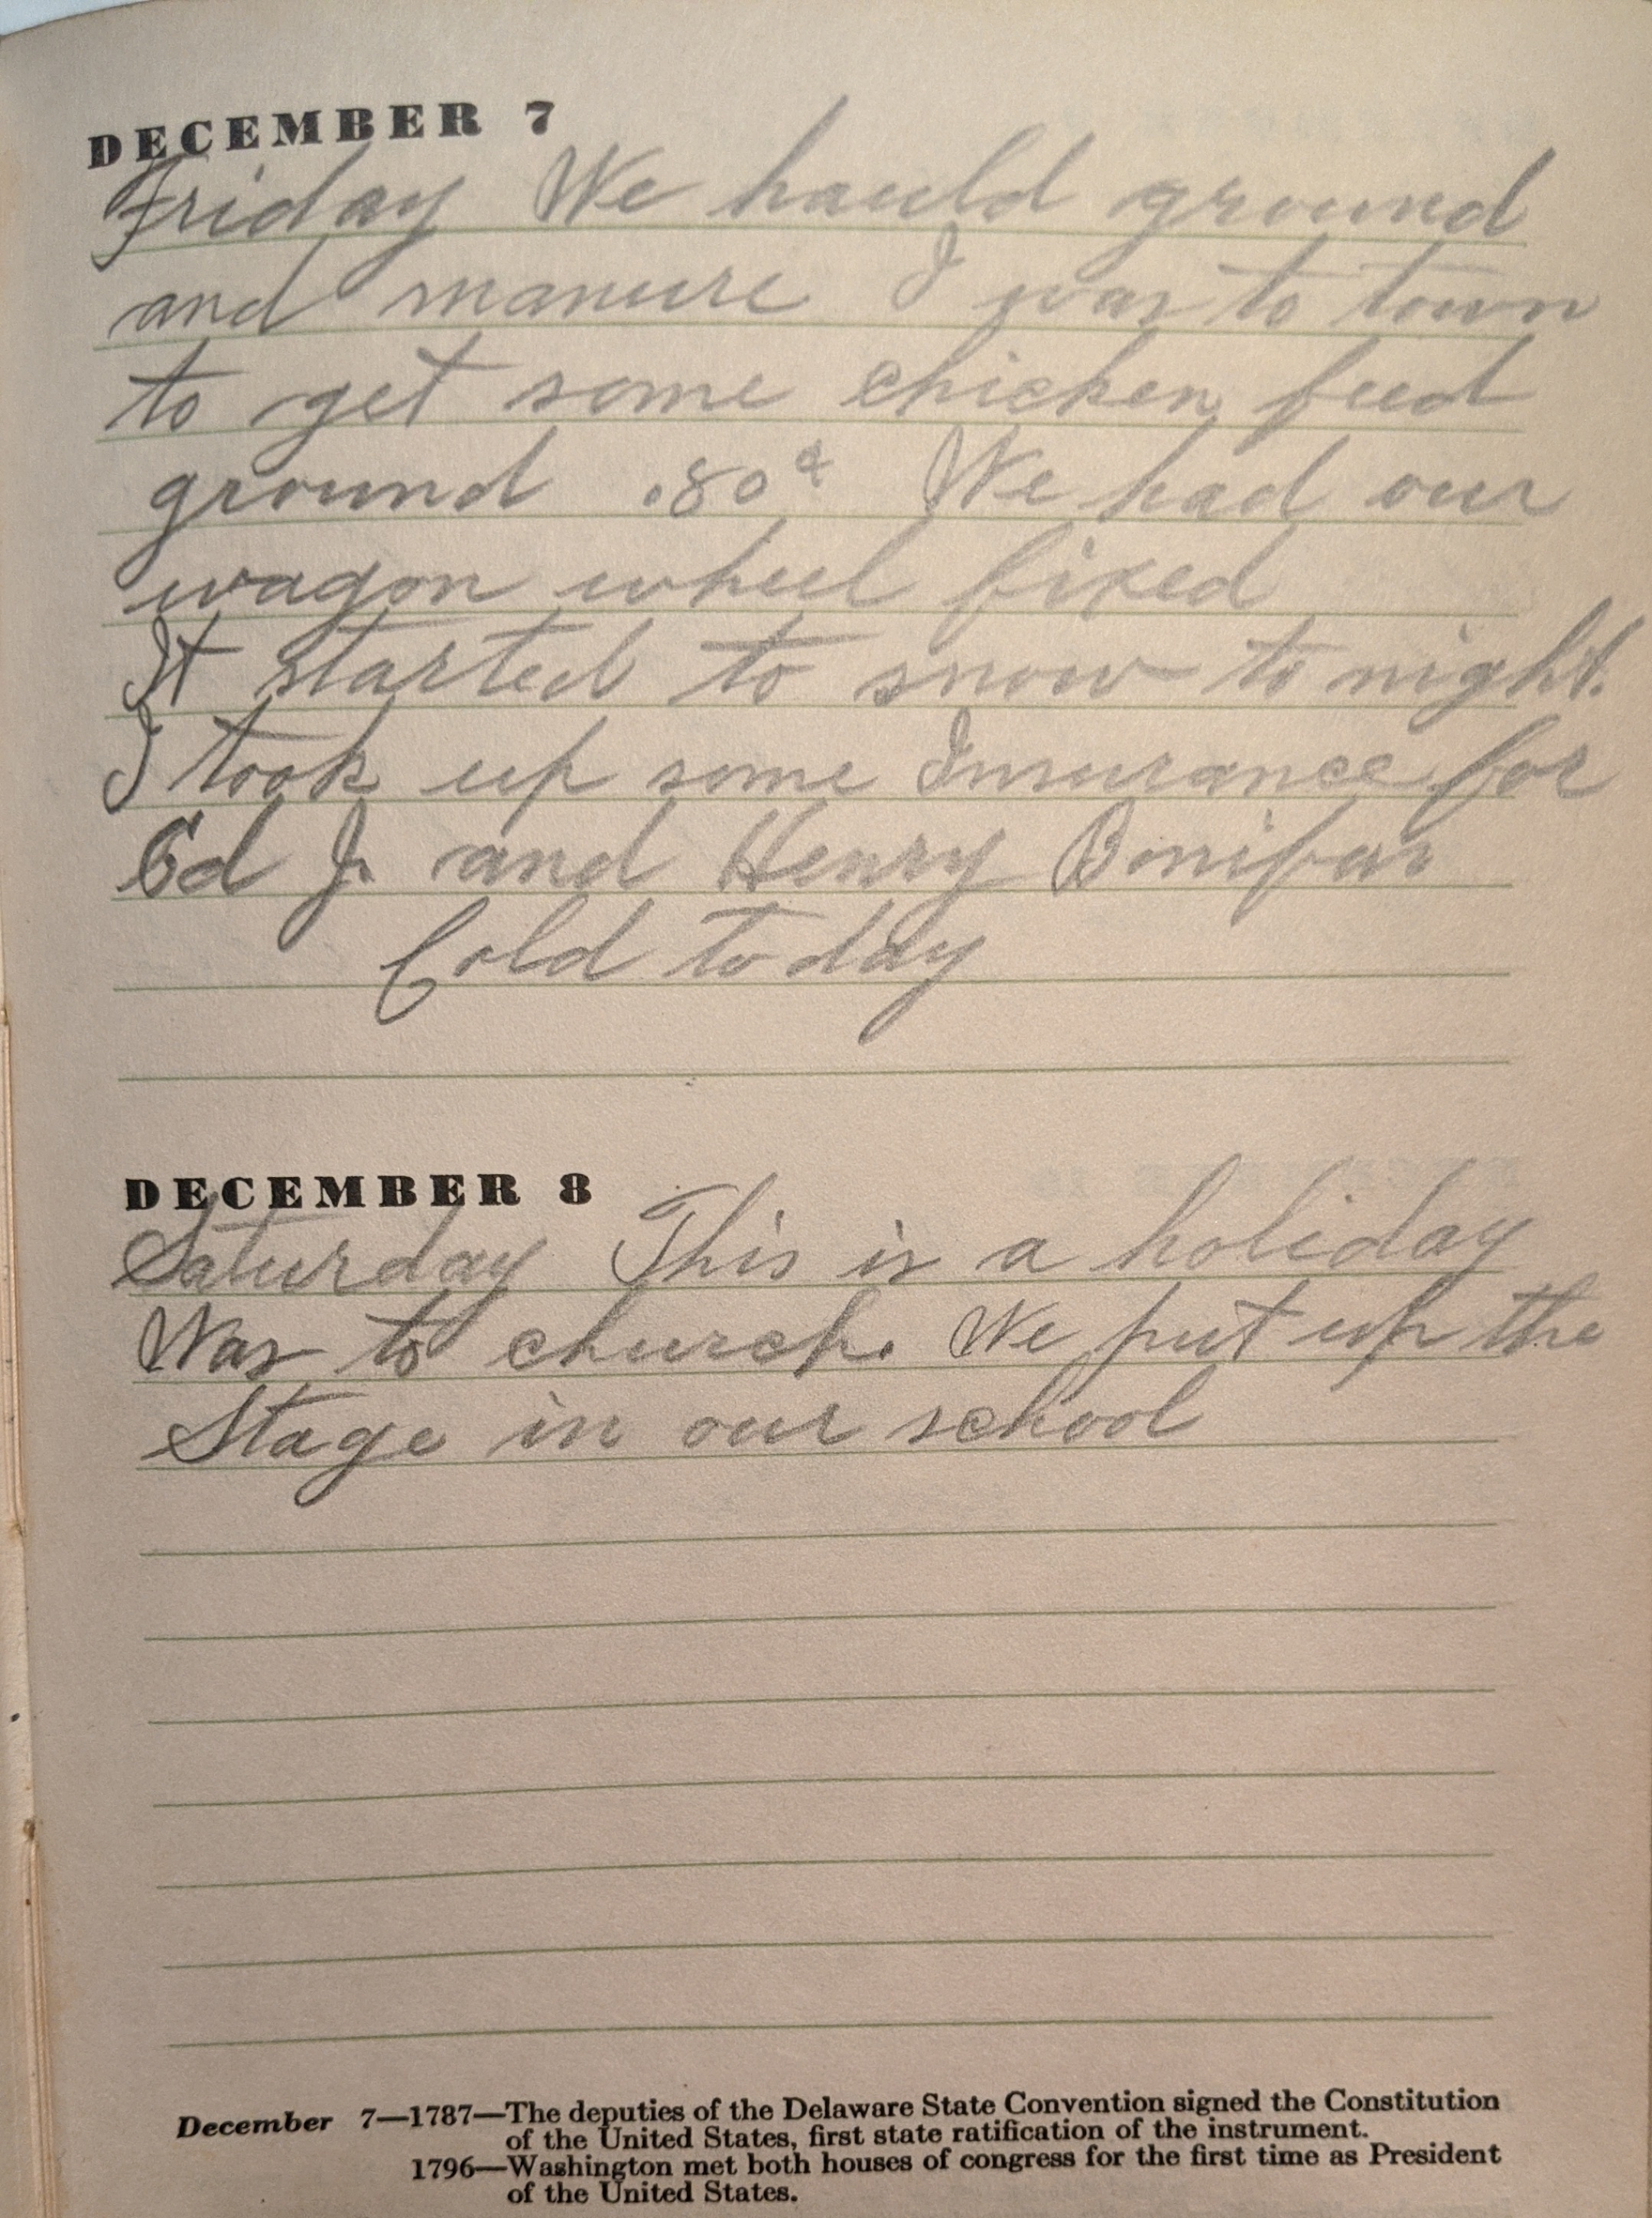 DECEMBER 7
Friday We hauld ground
and manure I was to town
to get some chicken feed
ground .80¢ We had our
wagon wheel fixed
It started to snow to night.
I took up some Insurance for
Ed J. and Henry Bonifas
Cold to day
DECEMBER 8
Saturday This is a holiday
Was to church. We put up the
Stage in our school
December 7—1787—The deputies of the Delaware State Convention signed the Constitution
of the United States, first state ratification of the instrument.
1796—Washington met both houses of congress for the first time as President
of the United States.